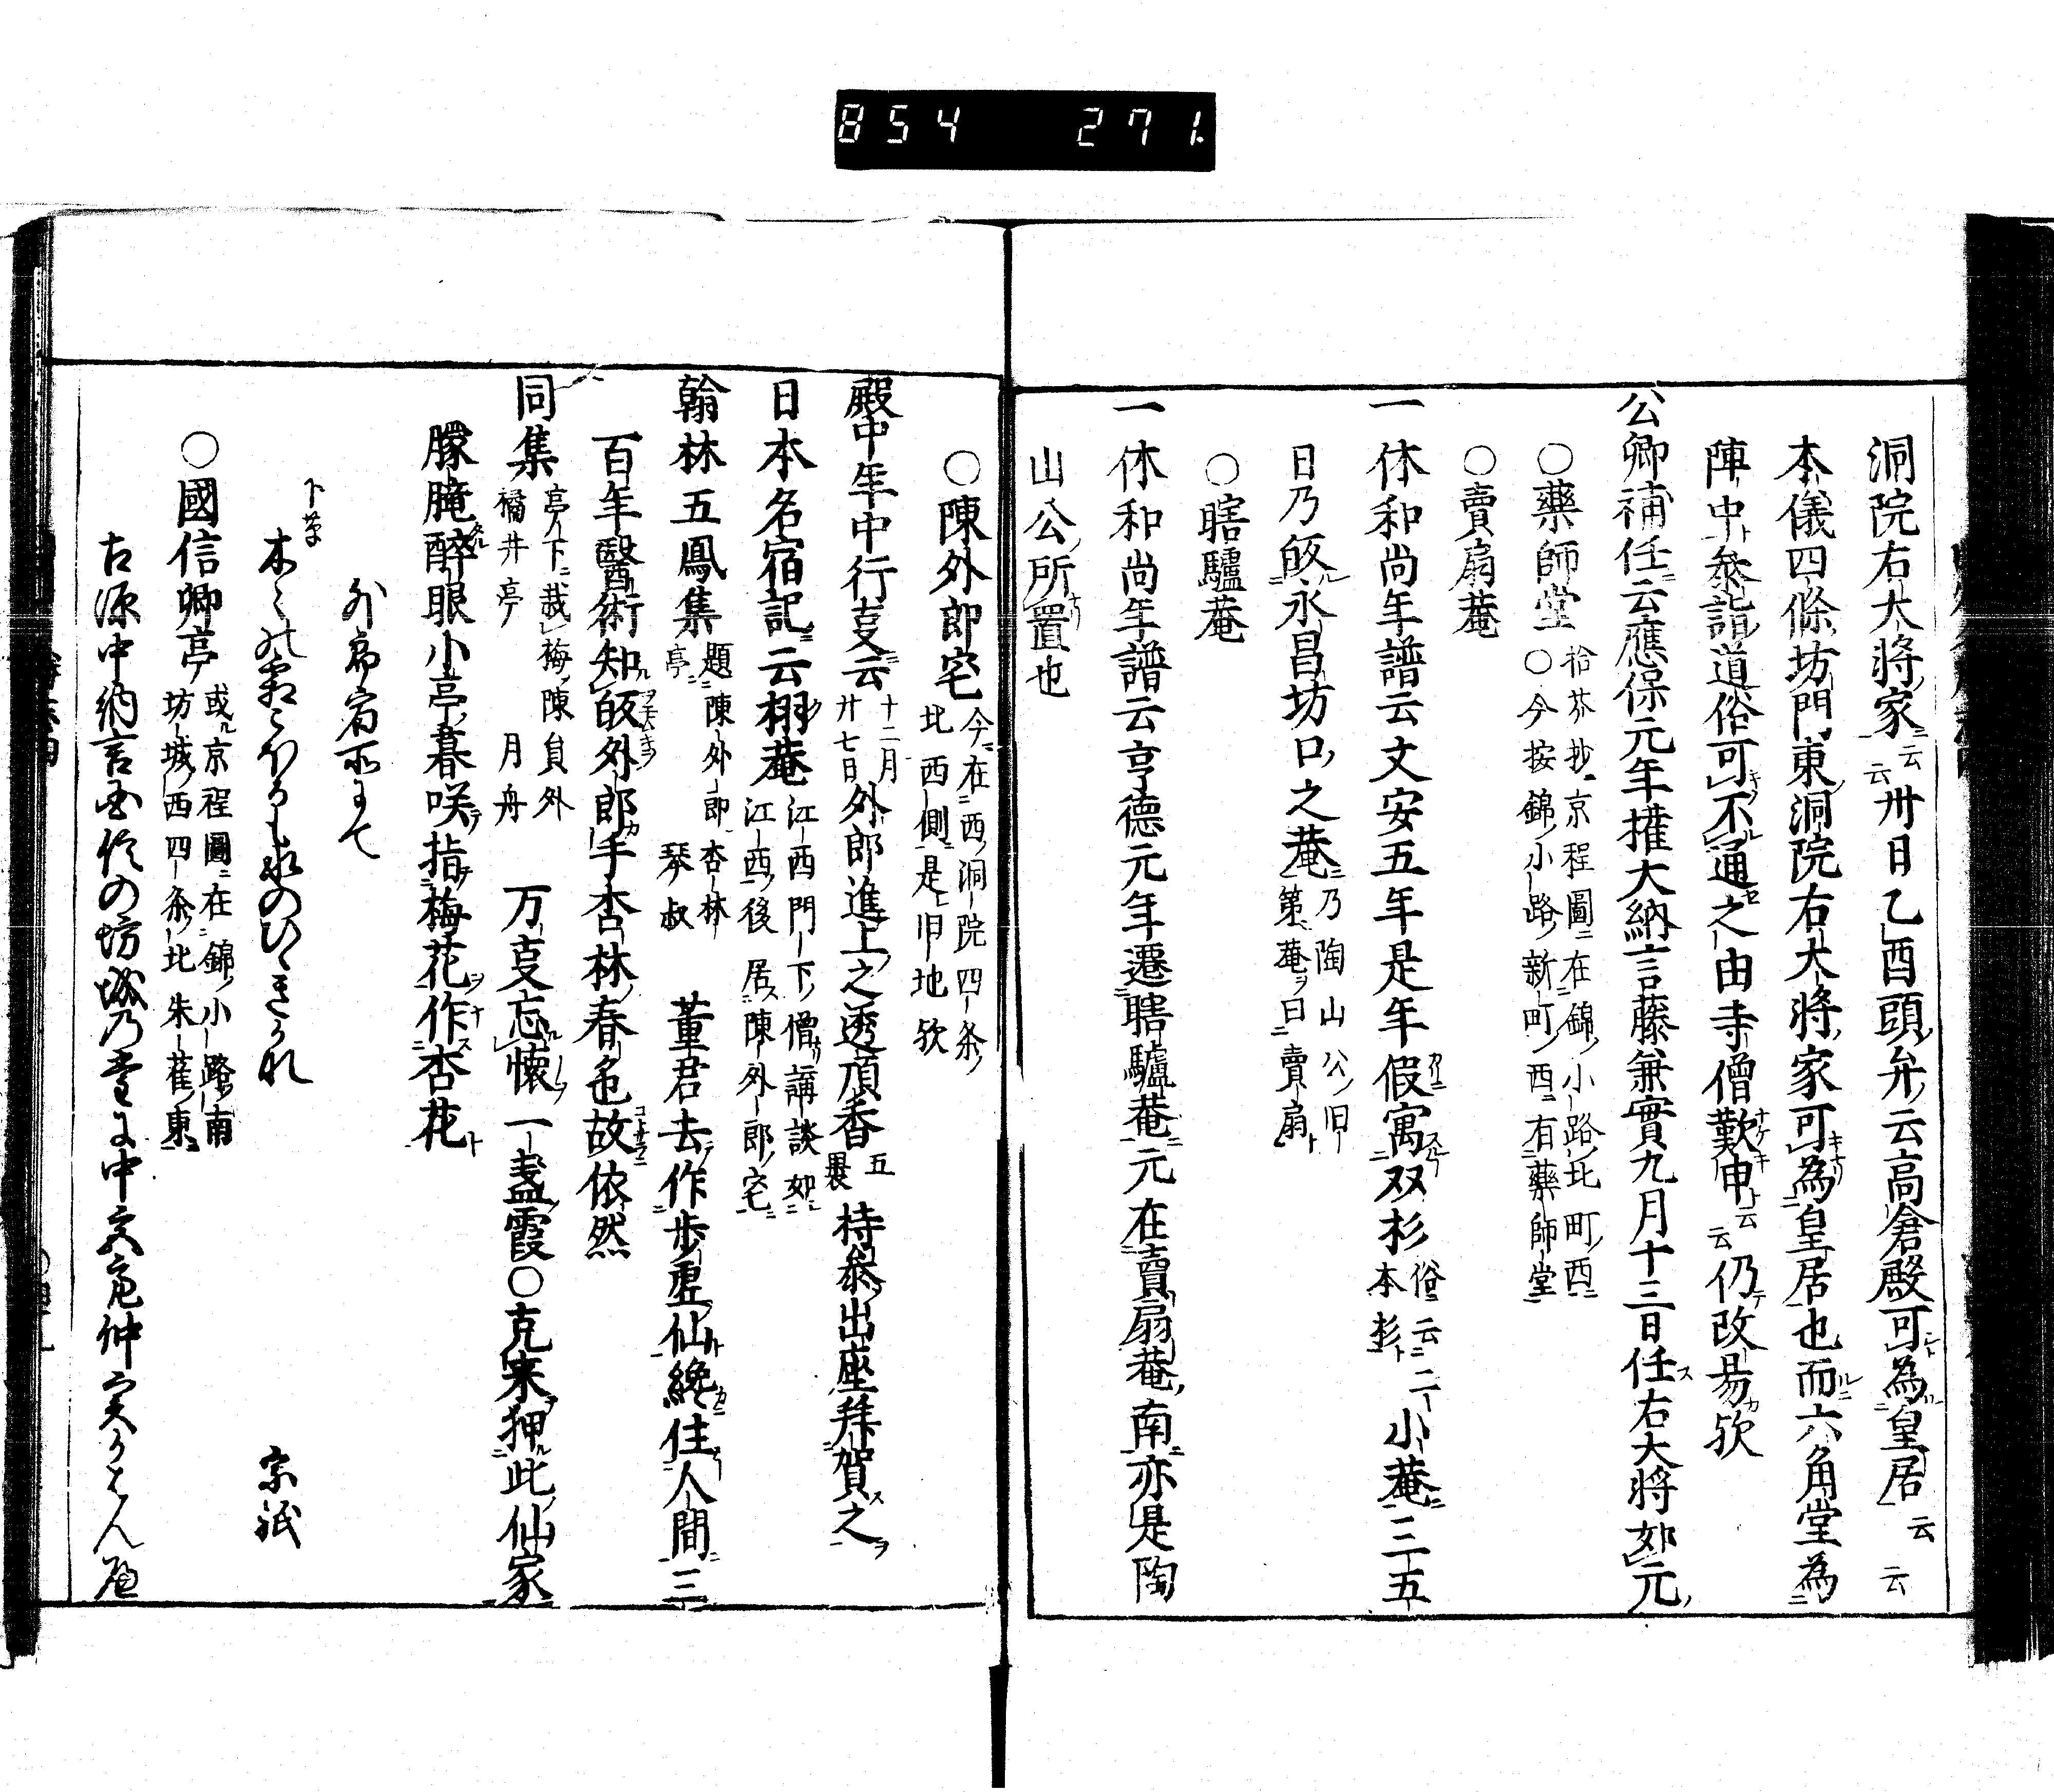 854 271.
洞院右大将家云云卅日乙酉頭弁云高倉殿可為皇居云云
本儀四條坊門東洞院右大将家可為皇居也而六角堂為
陣中參詣道俗可不通之由寺僧歎申云云仍改易欤
公卿補任云應保元年権大納言藤兼實九月十三日任右大将如元
○藥師堂 拾芥抄京程圖在錦小路北町西
○今按錦小路新町西有藥師堂
○賣扇菴
一休和尚年譜云文安五年是年假寓双杉 俗云二
本杉 小菴三五
日乃皈永昌坊口之菴 乃陶山公旧
第菴曰賣扇
○瞎驢菴
一休和尚年譜云亨德元年遷瞎驢菴元在賣扇菴南亦是陶
山公所置也
○陳外郎宅 今在西洞院四条
北西側是旧地欤
殿中年中行支云 十二月
廿七日 外郎進上之透頂香 五
裹 持參出座拜賀之
日本名宿記云栩菴 江西門下僧講談如
江西後居陳外郎宅
翰林五鳳集 題陳外郎杏林
亭 琴叔 董君去作歩虚仙纔住人間三
百年醫術知皈外郎手杏林春色故依然
同集 亭下栽梅陳員外
橘井亭 月舟 万支忘懐一盞霞○克来狎此仙家
朦朧醉眼小亭暮咲指梅花作杏花
外郎宿所にて
宗祇
○國信卿亭 或京程圖在錦小路南
坊城西四条北朱雀東